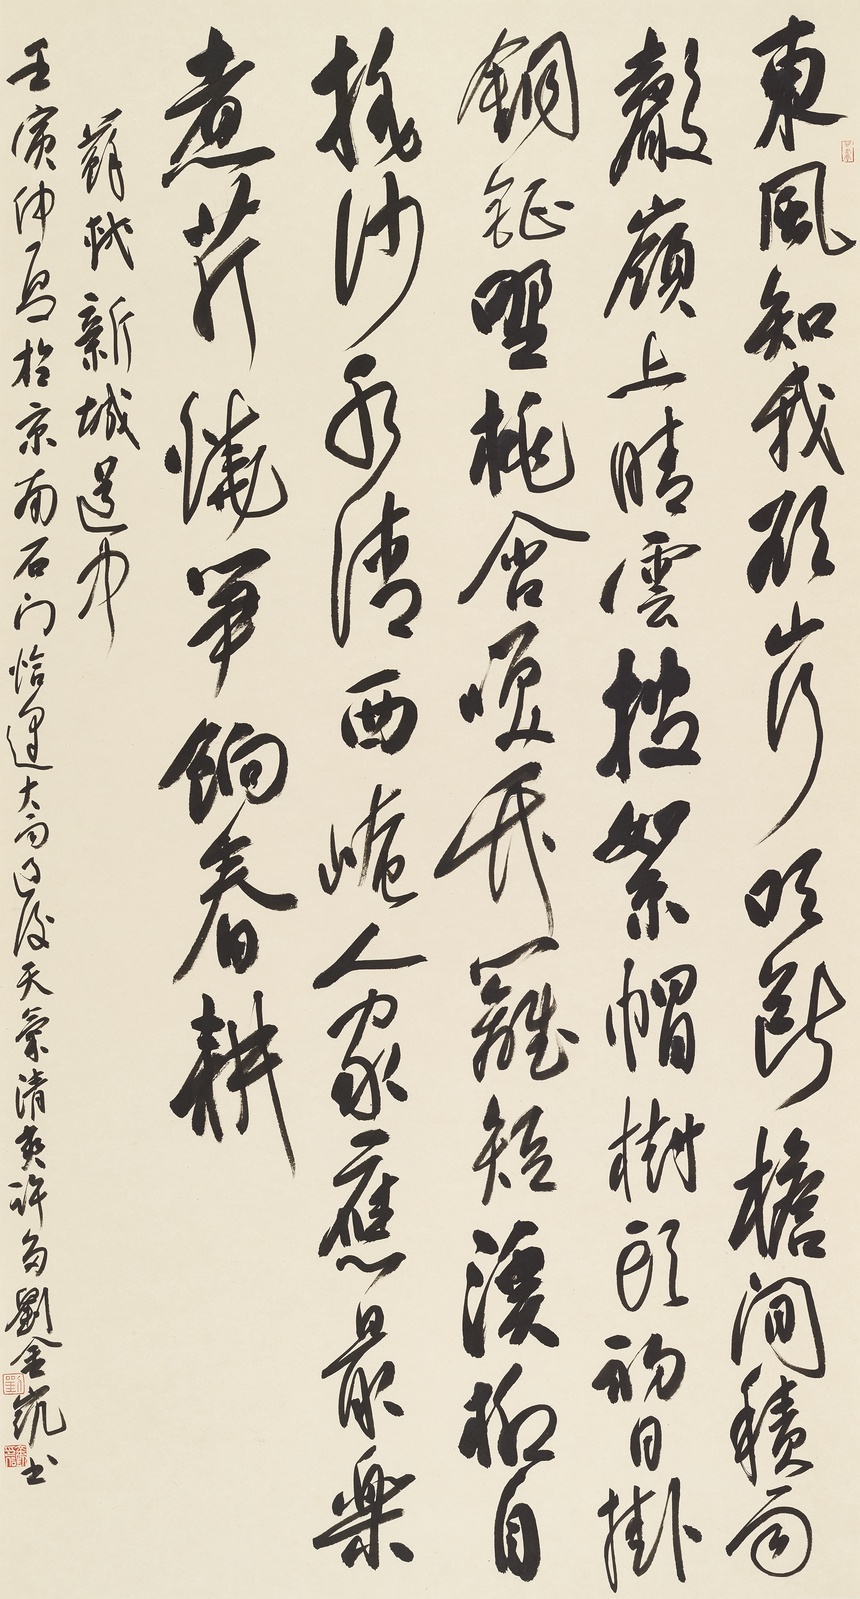 東風知我欲山行吹斷檐間積雨
聲嶺上晴雲披絮帽樹頭初日掛
銅鉦野桃含笑竹籬短溪柳自
搖沙水清西崦人家應最樂
煮芹燒笋餉春耕
蘇軾新城道中
壬寅仲夏於京南石门恰逢大雨过後天氣清爽許多劉金凱书